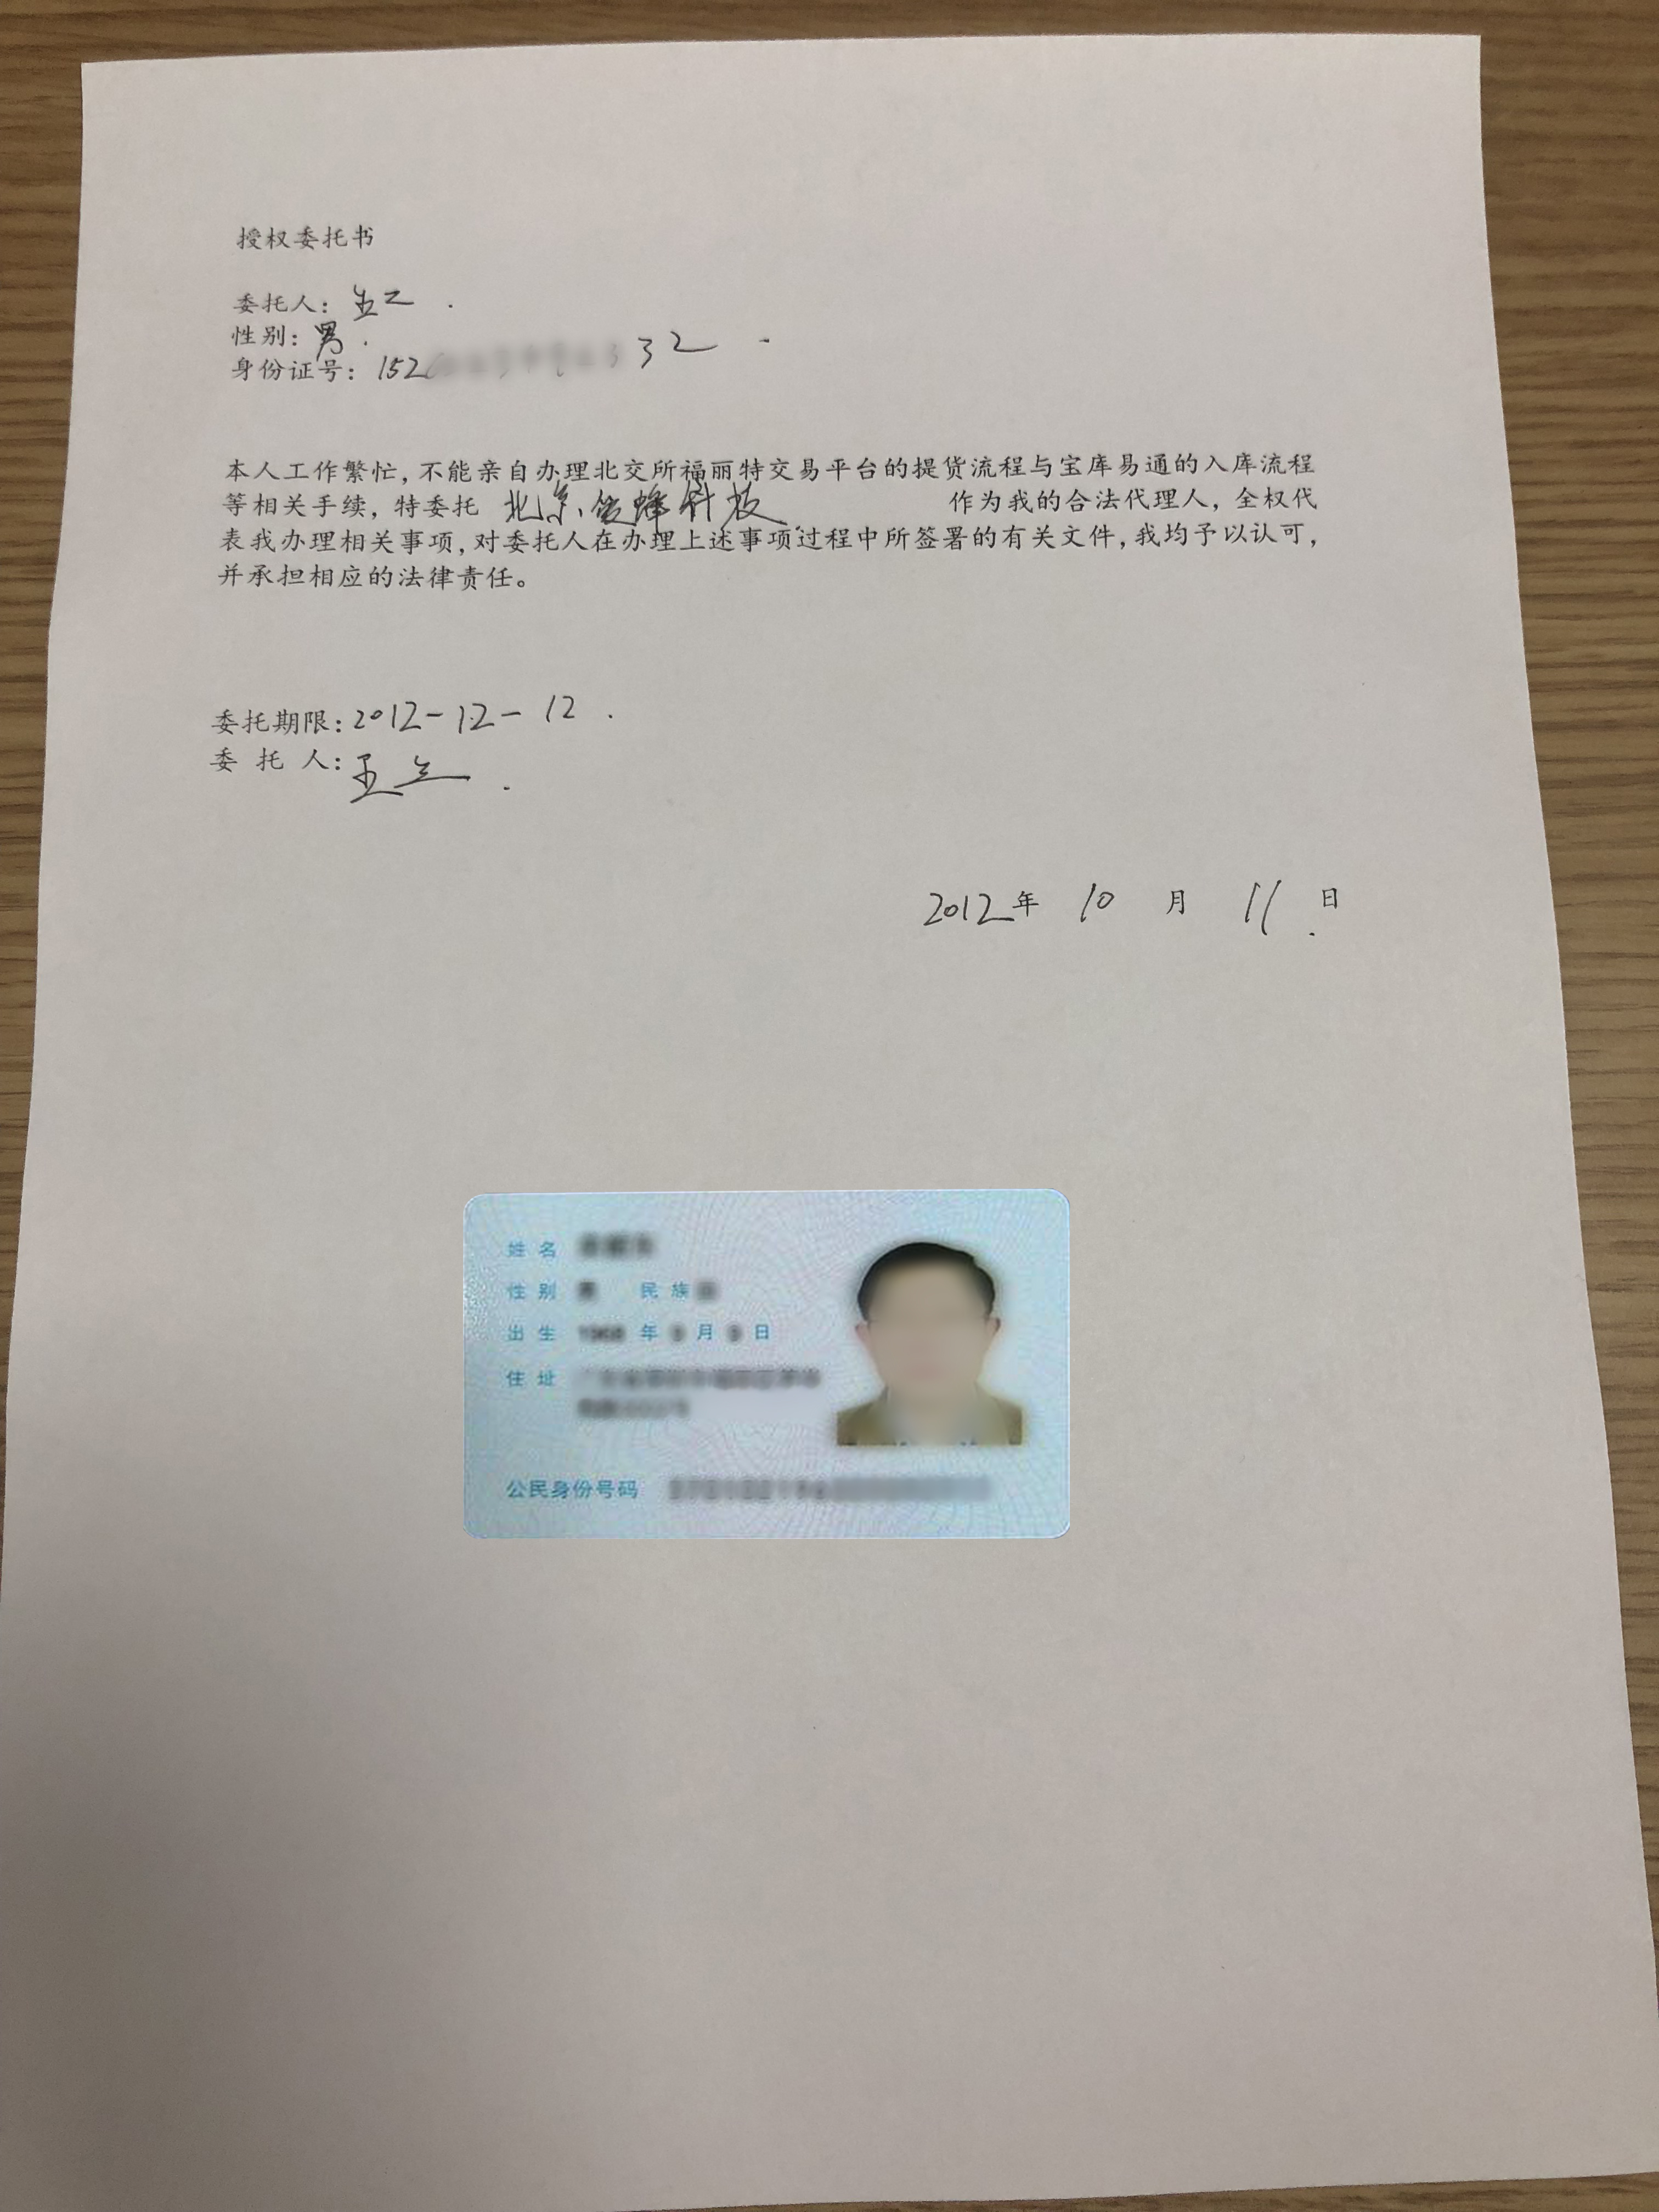 授权委托书
委托人：
性别：男.
身份证号：152 32
本人工作繁忙，不能亲自办理北交所福丽特交易平台的提货流程与宝库易通的入库流程
等相关手续，特委托 北京 蜂科技 作为我的合法代理人，全权代
表我办理相关事项，对委托人在办理上述事项过程中所签署的有关文件，我均予以认可，
并承担相应的法律责任。
委托期限：2012-12-12.
委 托 人：王
2012年 10 月 11 日
姓名
性别 民族
出生 年 月 日
住址
公民身份号码